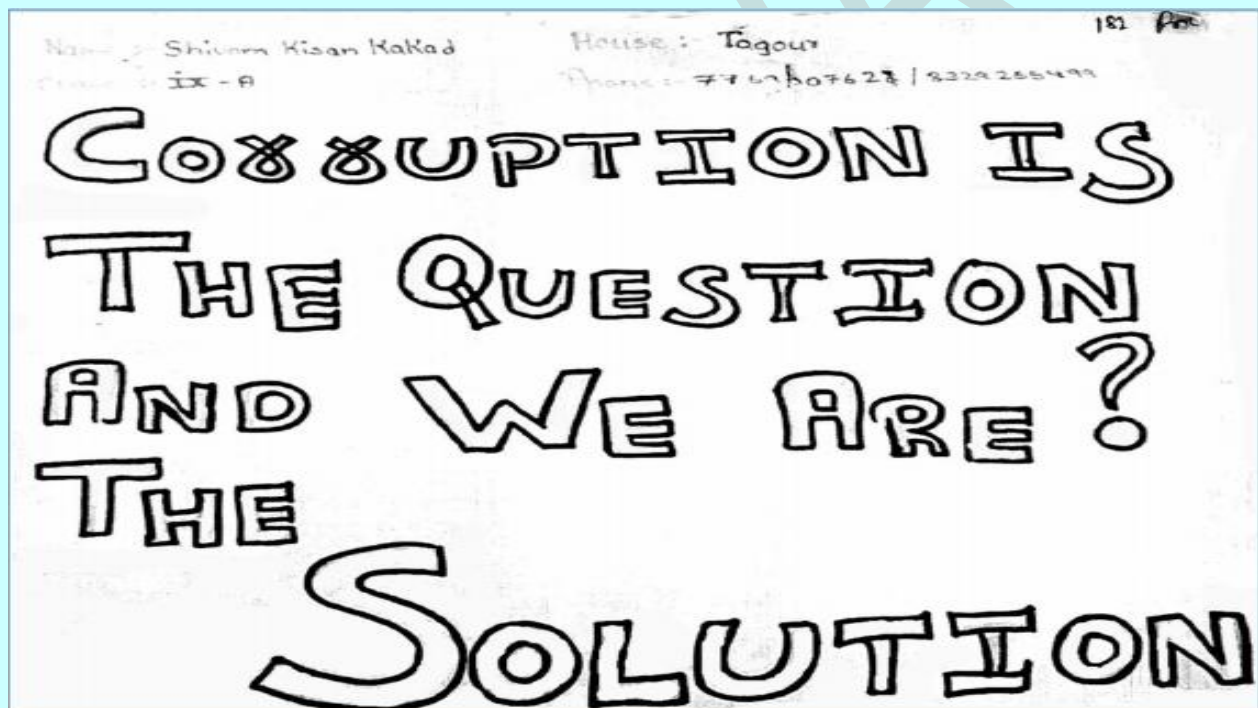 Name :- Shivam Kisan Kakad House :- Tagour 182
IX - A Phone :- / 8329255499
CORRUPTION IS
THE QUESTION
AND WE ARE ?
THE
SOLUTION